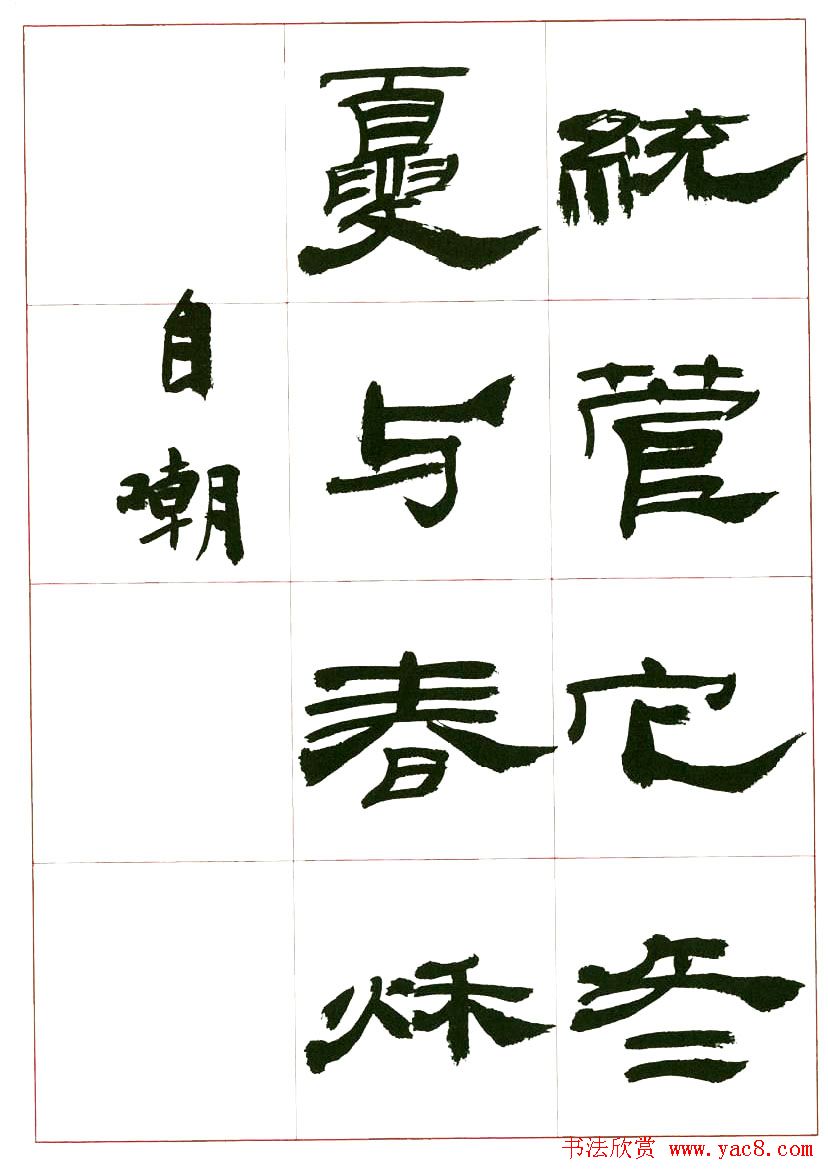 統管它冬
夏与春秋
自嘲
书法欣赏 www.yac8.com